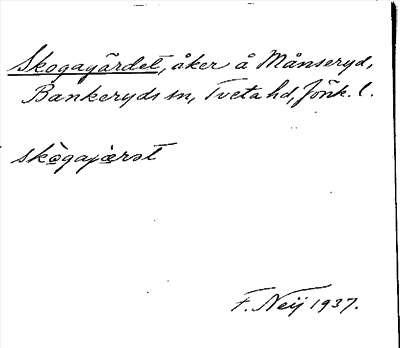 Skogagärdet, åker å Månseryd,
Bankeryds sn, Tveta hd, Jönk. l.
skògajæ̀rət
F. Neij 1937.